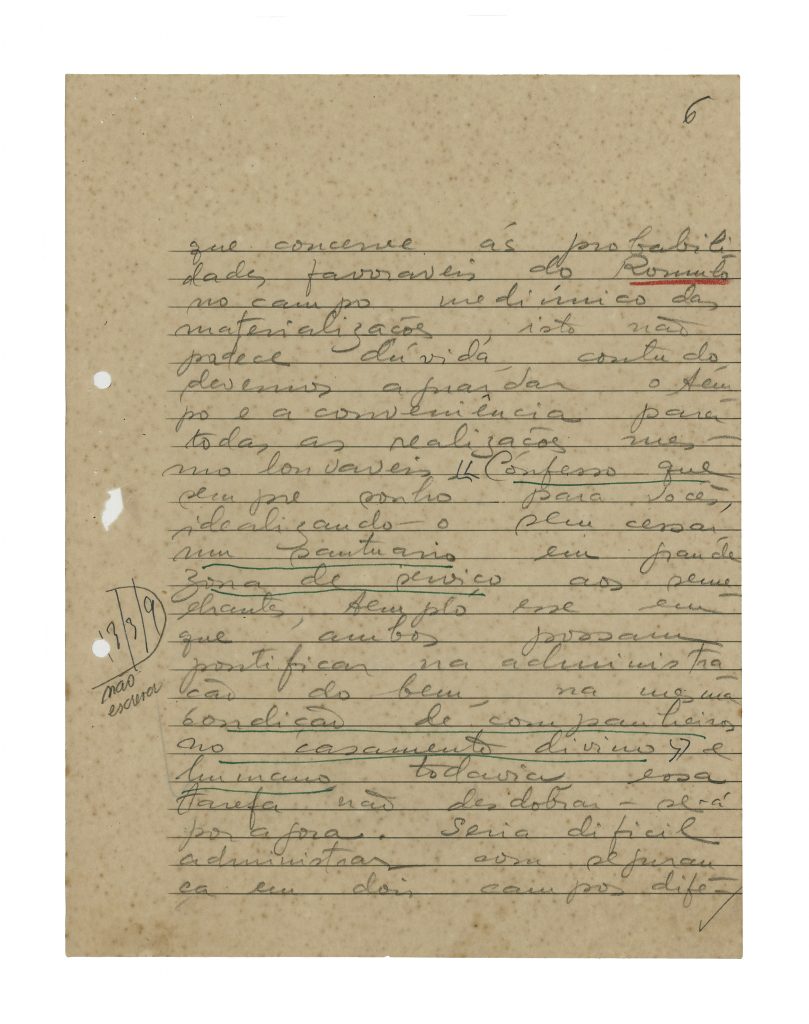 6
que concerne ás probabili
dades favoraveis do Romulo
no campo mediúnico das
materializações, isto não
padece dúvida, contudo
devemos aguardar o tem
po e a conveniência para
todas as realizações mes-
mo louvaveis. Confesso que
sempre sonho para vocês,
idealizando-o sem cessar
um santuario em grande
zona de serviço aos seme
lhantes, templo esse em
que ambos possam
pontificar na administra
ção do bem, na mesma
condição de companheiros
no casamento divino e
humano todavia, essa
tarefa não desdobrar-se-á
por agora. Seria dificil
administrar com seguran
ça em dois campos dife-
13/3/9
não
escrever